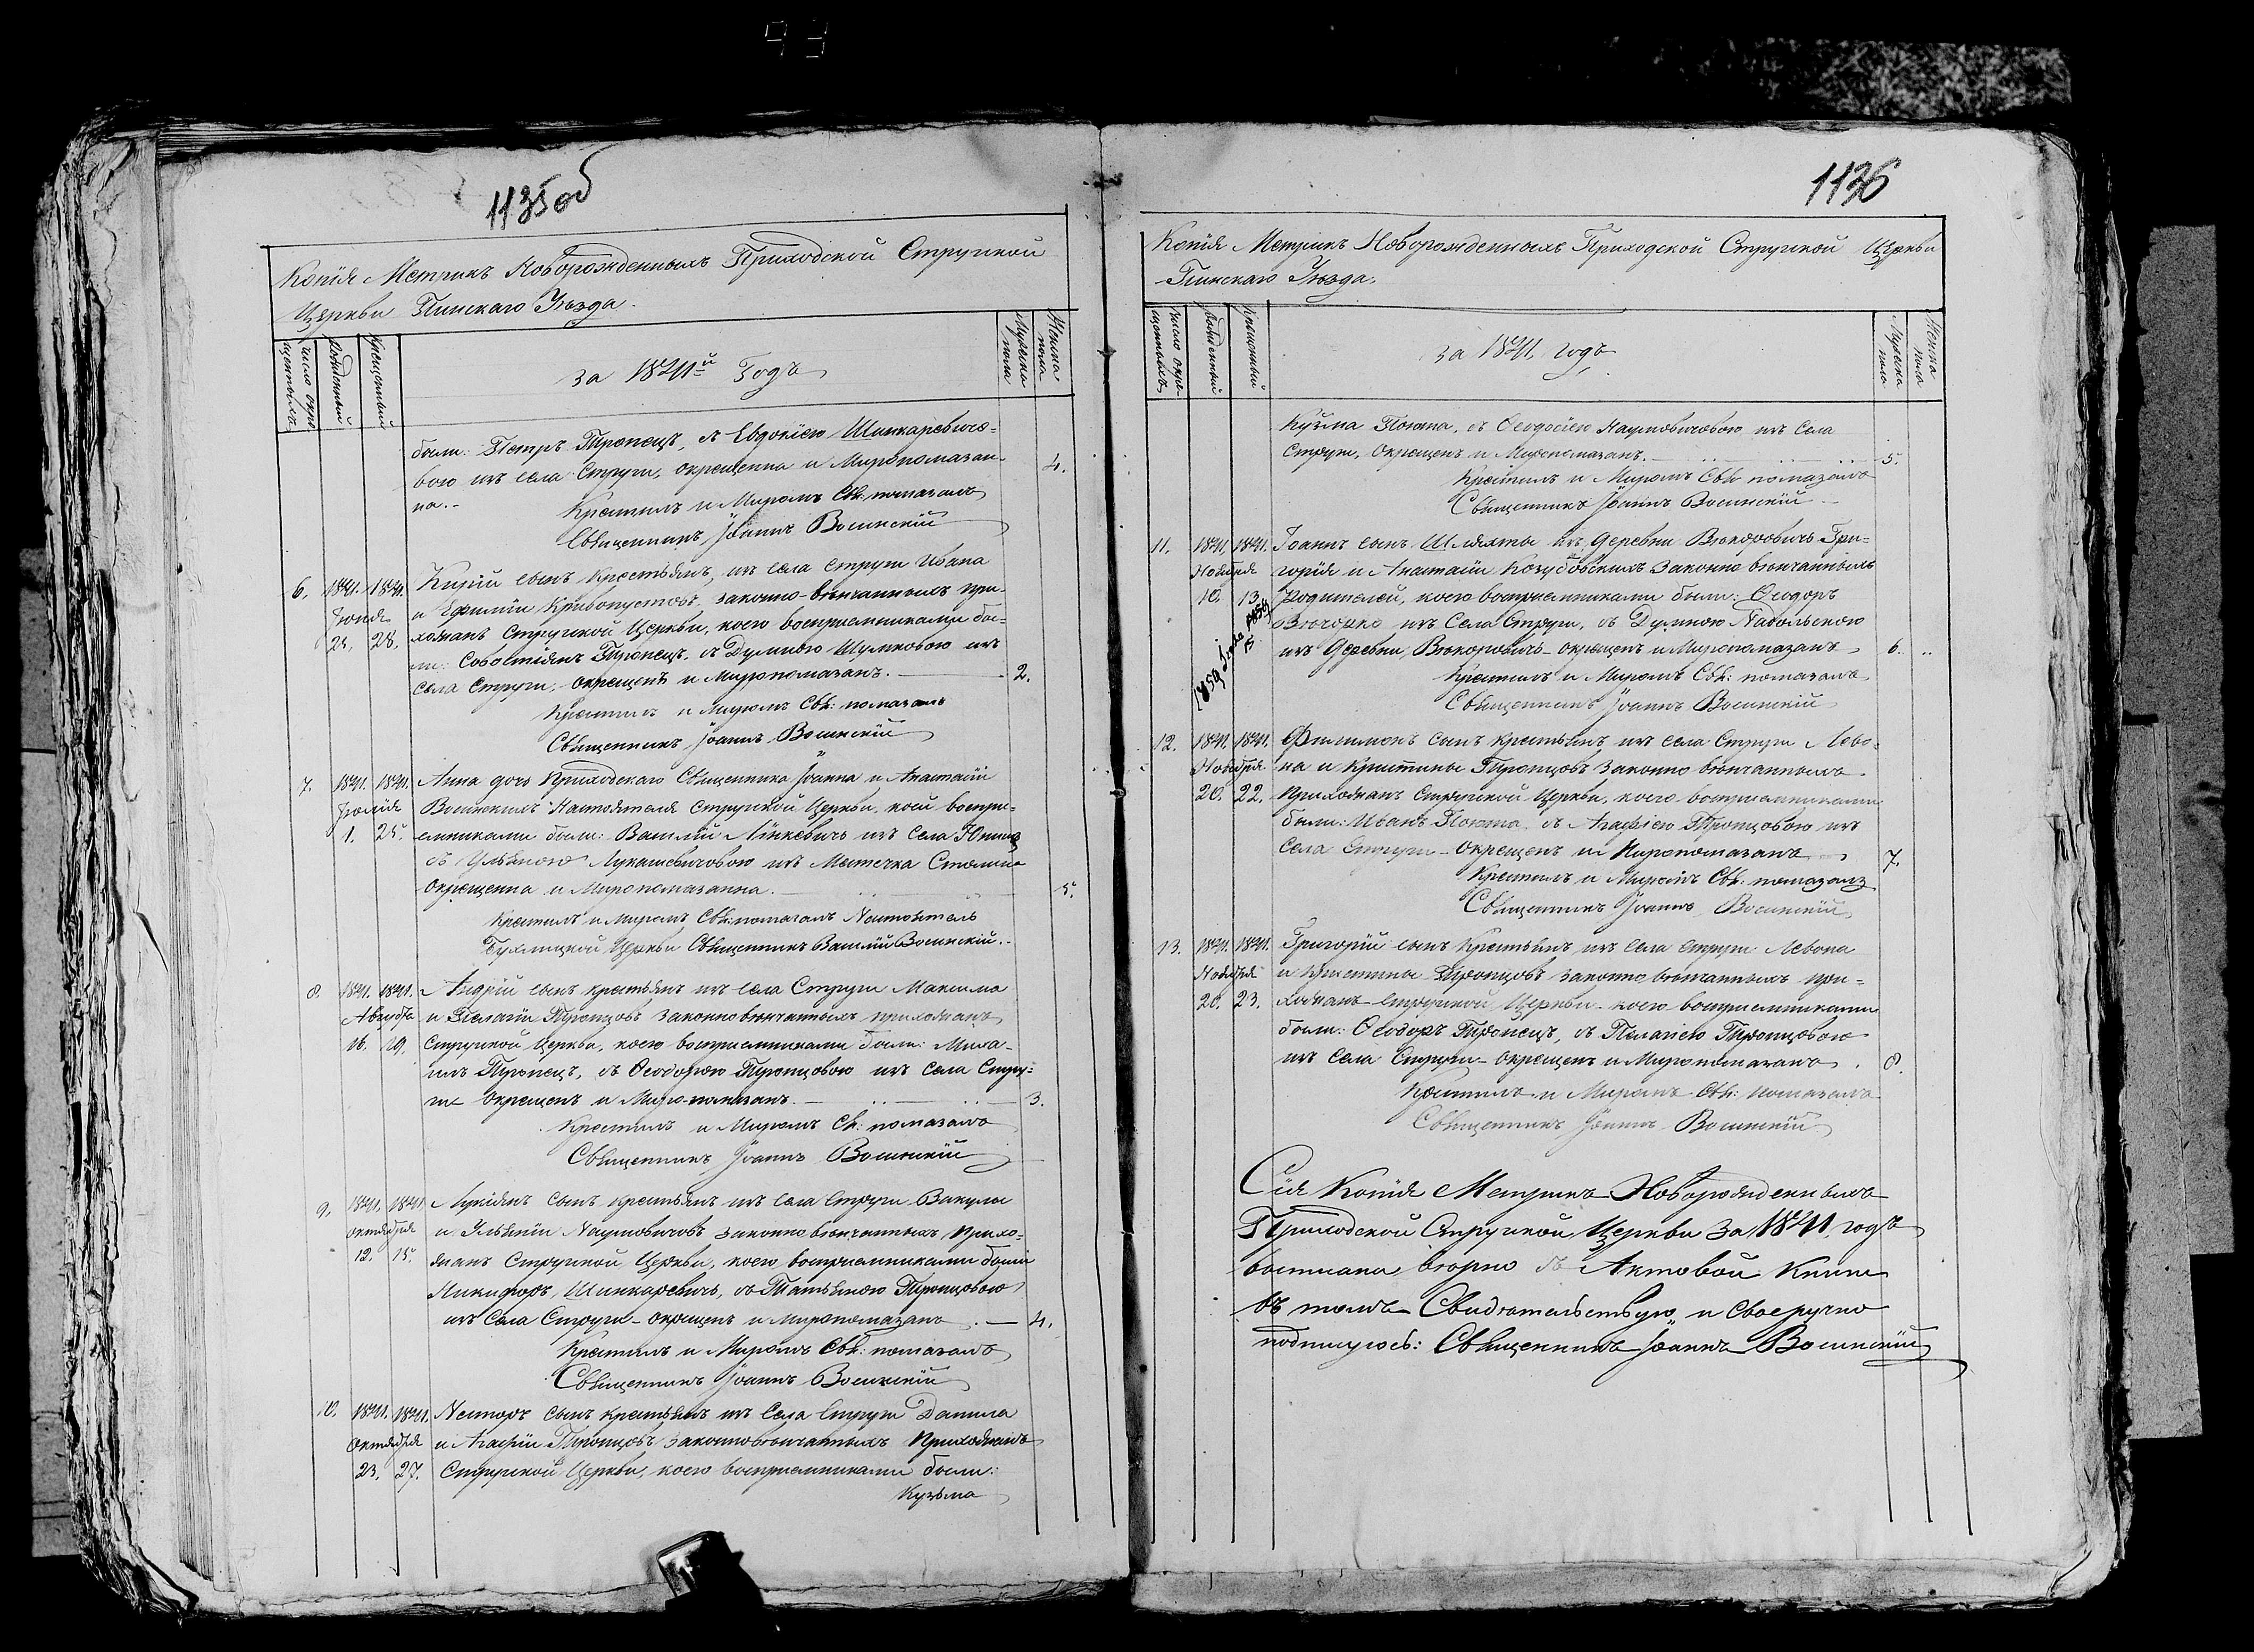 93
1135об
Копія Метрикъ Новорожденныхъ Приходской Стругской
Церкви Пинскаго Уѣзда.
число окре-
щенныхъ
рожденный
крещенный
за 1841й Годъ
Мужеска
пола
Женска
пола
были: Петръ Тиронецъ, съ Евдокіею Шинкаревичо-
вою изъ села Струги, окрещенна и Миропомазан-
на.- 4.
Крестилъ и Миромъ Свѣ: помазалъ
Священникъ Іоаннъ Восинскій
6. 1841. 1841. сынъ Крестьянъ, изъ села Струги Ивана
Іюня и Ефиміи законно-вѣнчанныхъ при-
25. 28. хожанъ Стругской Церкви, коего воспріемниками бы-
ли: Тиронецъ, съ изъ
села Струги,- окрещенъ и Миропомазанъ. 2.
Крестилъ и Миромъ Свѣ: помазалъ
Священникъ Іоаннъ Восинскій
7. 1841. 1841. Анна дочь Приходскаго Священника Іоанна и Анастасіи
Іюлія Восинскихъ Настоятеля Стругской Церкви, коей воспрі-
1. 25. емниками были: Василій изъ Села
съ Ульяною Лукашевичовою изъ Мѣстечка Столина
Окрещенна и Миропомазанна. 5.
Крестилъ и Миромъ Свѣ: помазалъ Настоятель
Церкви Священникъ Василій Восинскій.-
8. 1841. 1841. Андрій сынъ крестьянъ изъ села Струги Максима
Августа и Пелагіи Тиронцовъ законновѣнчанныхъ прихожанъ
16. 19. Стругской Церкви, коего воспріемниками были: Миха-
илъ Тиронецъ, съ Ѳеодорою Тиронцовою изъ Села Стру-
ги Окрещенъ и Миро-помазанъ. 3.
Крестилъ и Миромъ Св: помазалъ
Священникъ Іоаннъ Восинскій
9. 1841. 1841 Лукіянъ сынъ крестьянъ изъ села Струги Вакулы
Октября и Ульяніи Наумовичовъ законно вѣнчанныхъ Прихо-
12. 15. жанъ Стругской Церкви, коего воспріемниками были
Никифоръ Шинкаревичъ, съ Татьяною Тиронцовою
изъ Села Струги - окрещенъ и миропомазанъ 4.
Крестилъ и Миромъ Свѣ: помазалъ
Священникъ Іоаннъ Восинскій
10. 1841. 1841. Несторъ сынъ крестьянъ изъ Села Струги Данила
Октября и Агафіи Тиронцовъ законновѣнчанныхъ Прихожанъ
23. 27. Стругской Церкви, коего воспріемниками были:
Кузьма
1136
Копія Метрикъ Новорожденныхъ Приходской Стругской Церкви
Пинскаго Уѣзда.
число окре-
щенныхъ
рожденный
крещенный
за 1841. годъ
Мужеска
пола
Женска
пола
Кузьма Полюта, съ Ѳеодосіею Наумовичовою изъ Села
Струги, Окрещенъ и Миропомазанъ. 5.
Крестилъ и Миромъ Свѣ помазалъ
Священникъ Іоаннъ Восинскій
11. 1841. 1841. Іоаннъ сынъ Шляхты изъ Деревни Гри-
Ноября горія и Анастасіи Козубовскихъ Законно вѣнчанныхъ
10. 13. Родителей, коего воспріемниками были: Ѳеодоръ
изъ Села Струги, съ
изъ Деревни окрещенъ и Миропомазанъ 6.
Крестилъ и Миромъ Свѣ: помазалъ
Священникъ Іоаннъ Восинскій
12. 1841. 1841. Филимонъ сынъ крестьянъ изъ села Струги Лево-
Ноября на и Кристины Тиронцовъ Законно вѣнчанныхъ
20. 22. Прихожанъ Стругской Церкви, коего воспріемниками
были: Иванъ Полюта съ Агафіею Тиронцовою изъ
Села Струги - Окрещенъ и Миропомазанъ 7.
Крестилъ и Миромъ Свѣ: помазалъ
Священникъ Іоаннъ Восинскій
13. 1841. 1841. Григорій сынъ Крестьянъ изъ Села Струги Левона
Ноября и Кристины Тиронцовъ законно вѣнчанныхъ при-
20. 23. хожанъ Стругской Церкви - коего воспріемниками
были: Ѳеодоръ Тиронецъ, съ Пелагіею Тиронцовою
изъ Села Струги - Окрещенъ и Миропомазанъ. 8.
Крестилъ и Миромъ Свѣ: помазалъ
Священникъ Іоаннъ Восинскій
Сія Копія Метрикъ Новорожденныхъ
Приходской Стругской Церкви За 1841. годъ
выписана вѣрно съ Актовой Книги
въ томъ Свидѣтельствую, и Своеручно
подпишуюсь: Священникъ Іоаннъ Восинскій